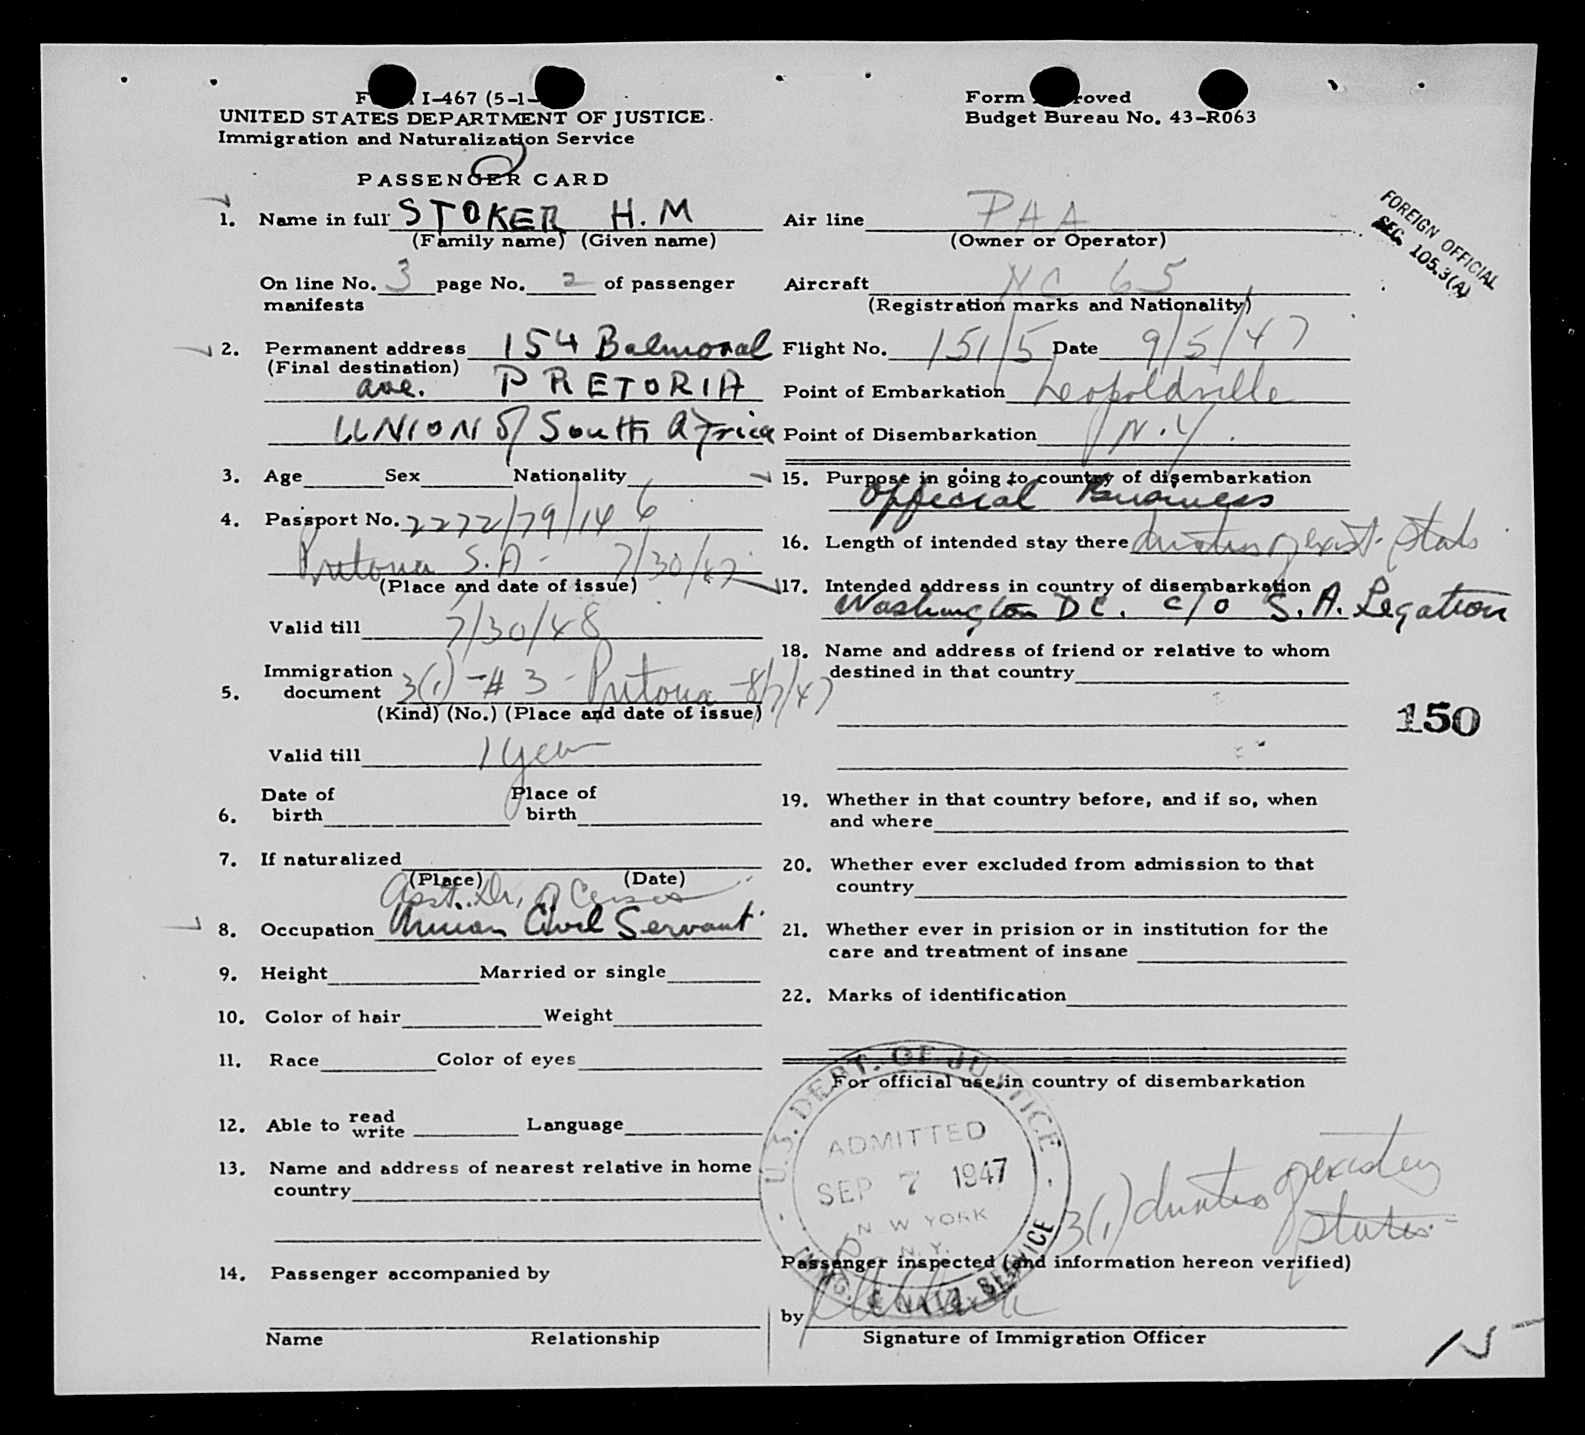 F I-467 (5-1-
UNITED STATES DEPARTMENT OF JUSTICE.
Immigration and Naturalization Service
PASSENGER CARD
1. Name in full STOKER H. M
(Family name) (Given name)
On line No. 3 page No. 2 of passenger
manifests
2. Permanent address 154 Balmoral
(Final destination)
ave. PRETORIA
UNION of South Africa
3. Age Sex Nationality
4. Passport No. 2272/79/14 6
Pretoria S.A - 7/30/47
(Place and date of issue)
Valid till 7/30/48
Immigration
5. document 3(1) - # 3 - Pretoria - 8/7/47
(Kind) (No.) (Place and date of issue)
Valid till 1 year
Date of Place of
6. birth birth
7. If naturalized
(Place) (Date)
Asst. Dir. of Census
8. Occupation Union Civil Servant
9. Height Married or single
10. Color of hair Weight
11. Race Color of eyes
12. Able to read write Language
13. Name and address of nearest relative in home
country
14. Passenger accompanied by
Name Relationship
Form roved
Budget Bureau No. 43-R063
Air line PAA
(Owner or Operator)
Aircraft NC 65
(Registration marks and Nationality)
Flight No. 151/5 Date 9/5/47
Point of Embarkation Leopoldville
Point of Disembarkation N.Y.
15. Purpose in going to country of disembarkation
Official Business
16. Length of intended stay there duration of exist. status
17. Intended address in country of disembarkation
Washington DC. c/o S. A. Legation
18. Name and address of friend or relative to whom
destined in that country
19. Whether in that country before, and if so, when
and where
20. Whether ever excluded from admission to that
country
21. Whether ever in prision or in institution for the
care and treatment of insane
22. Marks of identification
For official use in country of disembarkation
U.S. DEPT. OF JUSTICE
ADMITTED
SEP 7 1947
N W YORK
N. Y.
IMMG. & NATZ. SERVICE
3(1) duration of existing
status
Passenger inspected (and information hereon verified)
by
Signature of Immigration Officer
FOREIGN OFFICIAL
SEC. 105.3(A)
150
15